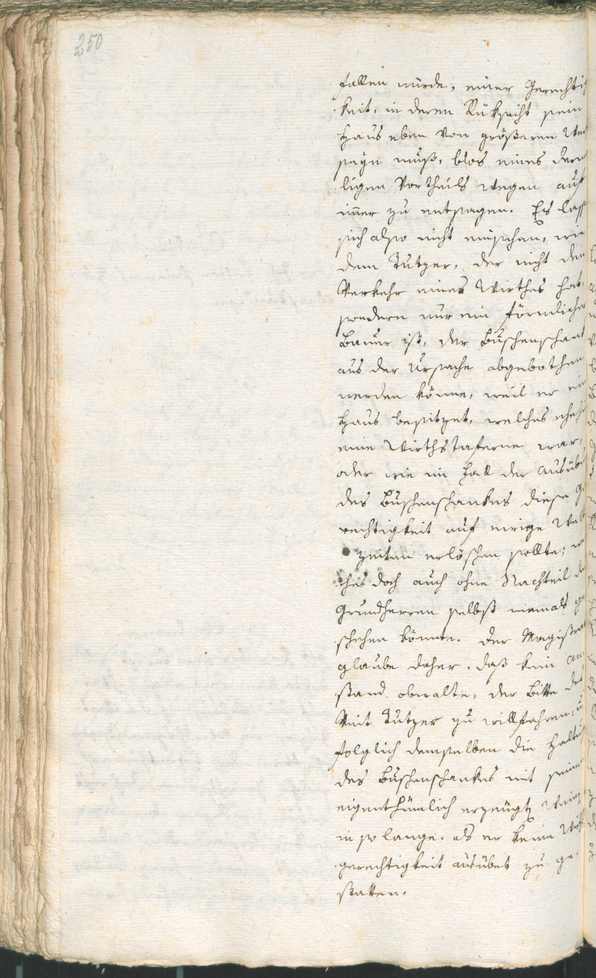 250
fallen würde, einer Gerechtig
keit, in deren Rüksicht sein
Haus eben von größeren Wer
seyn muß, blos eines derm
ligen Vortheils wegen auf
immer zu entsagen. Es lasse
sich also nicht einsehen, wie
dem Tutzer, der nicht den
Verkehr eines Wirthes hat,
sondern nur ein förmlicher
Bauer ist, der Buschenschank
aus der Ursache abgebothen
werden könne, weil er ein
Haus besitzet, welches ehe
eine Wirthstaferne war,
oder wie im Fall der Ausübu
des Buschenschankes diese Ge
rechtigkeit auf einige
zeiten erlöschen sollte; we
ches doch auch ohne Nachteil de
Grundherren selbst niemals ge
schehen könne. Der Magistrat
glaube daher, daß kein An
stand obwalte, der Bitte des
Veit Tutzer zu willfahren, u
folglich demselben die Halt
des Buschenschankes mit seinem
eigenthümlich erzeugt Wein
in so lange, als er keine Wirt
gerechtigkeit ausübet zu ge
statten.